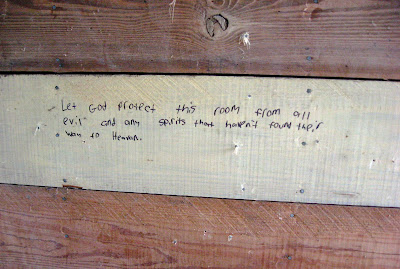 Let God Protect this room from all
evil and any spirits that haven't found their
way to Heaven.